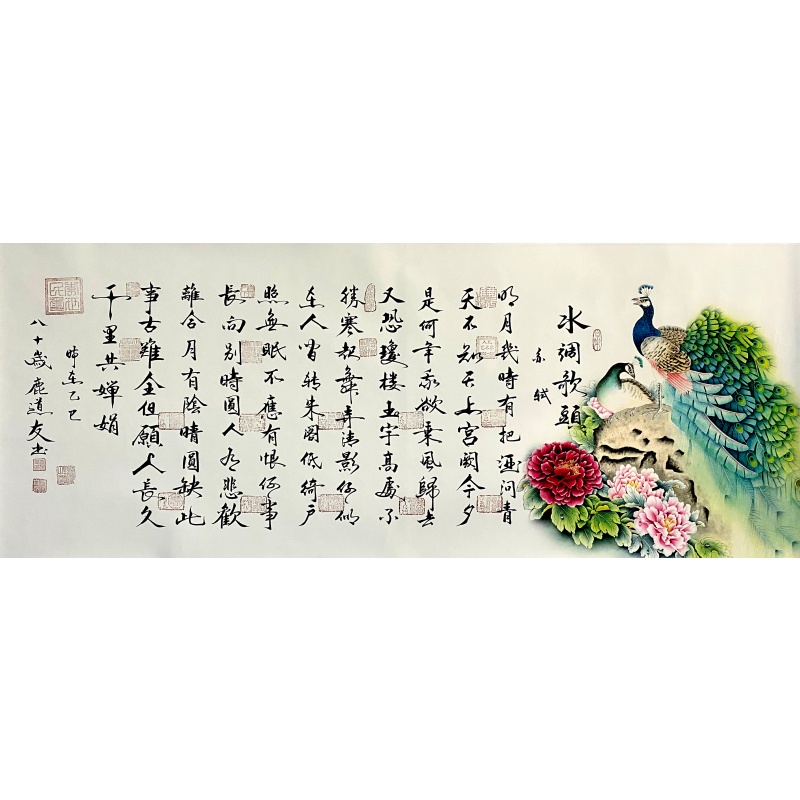 水调歌頭
苏轼
明月幾時有把酒问青
天不知天上宫阙今夕
是何年我欲乘風歸去
又恐瓊楼玉宇高處不
勝寒起舞弄清影何似
在人间转朱阁低绮户
照無眠不應有恨何事
長向别時圓人有悲歡
離合月有陰晴圓缺此
事古難全但願人長久
千里共婵娟
時在乙巳
八十歲鹿道友书